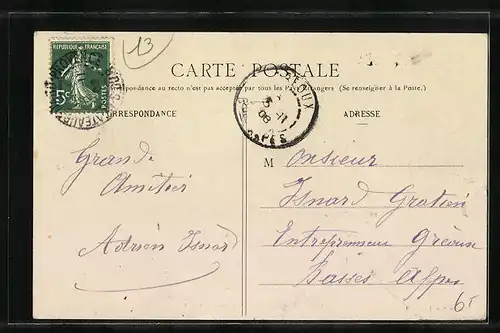 13
REPUBLIQUE FRANÇAISE
5c POSTES
CARTE POSTALE
La Correspondance au recto n'est pas acceptée par tous les Pays Étrangers (Se renseigner à la Poste.)
CORRESPONDANCE
ADRESSE
GREOUX
5 -11
08
BSES ALPES
Grande
Amitier
Adrien Isnard
Monsieur
Isnard Gratien
Entrepreneur Gréoux
Basses Alpes
6f